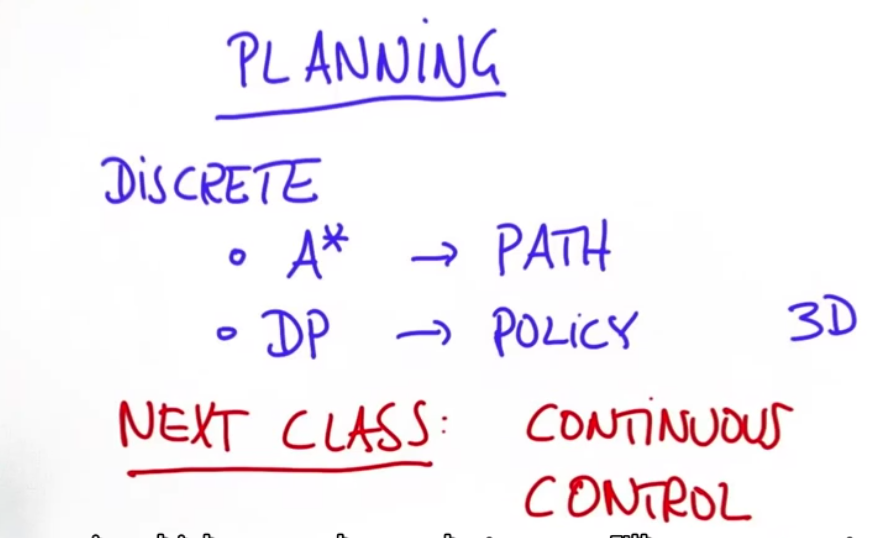 PLANNING
DISCRETE
• A* → PATH
• DP → POLICY 3D
NEXT CLASS: CONTINUOUS
CONTROL